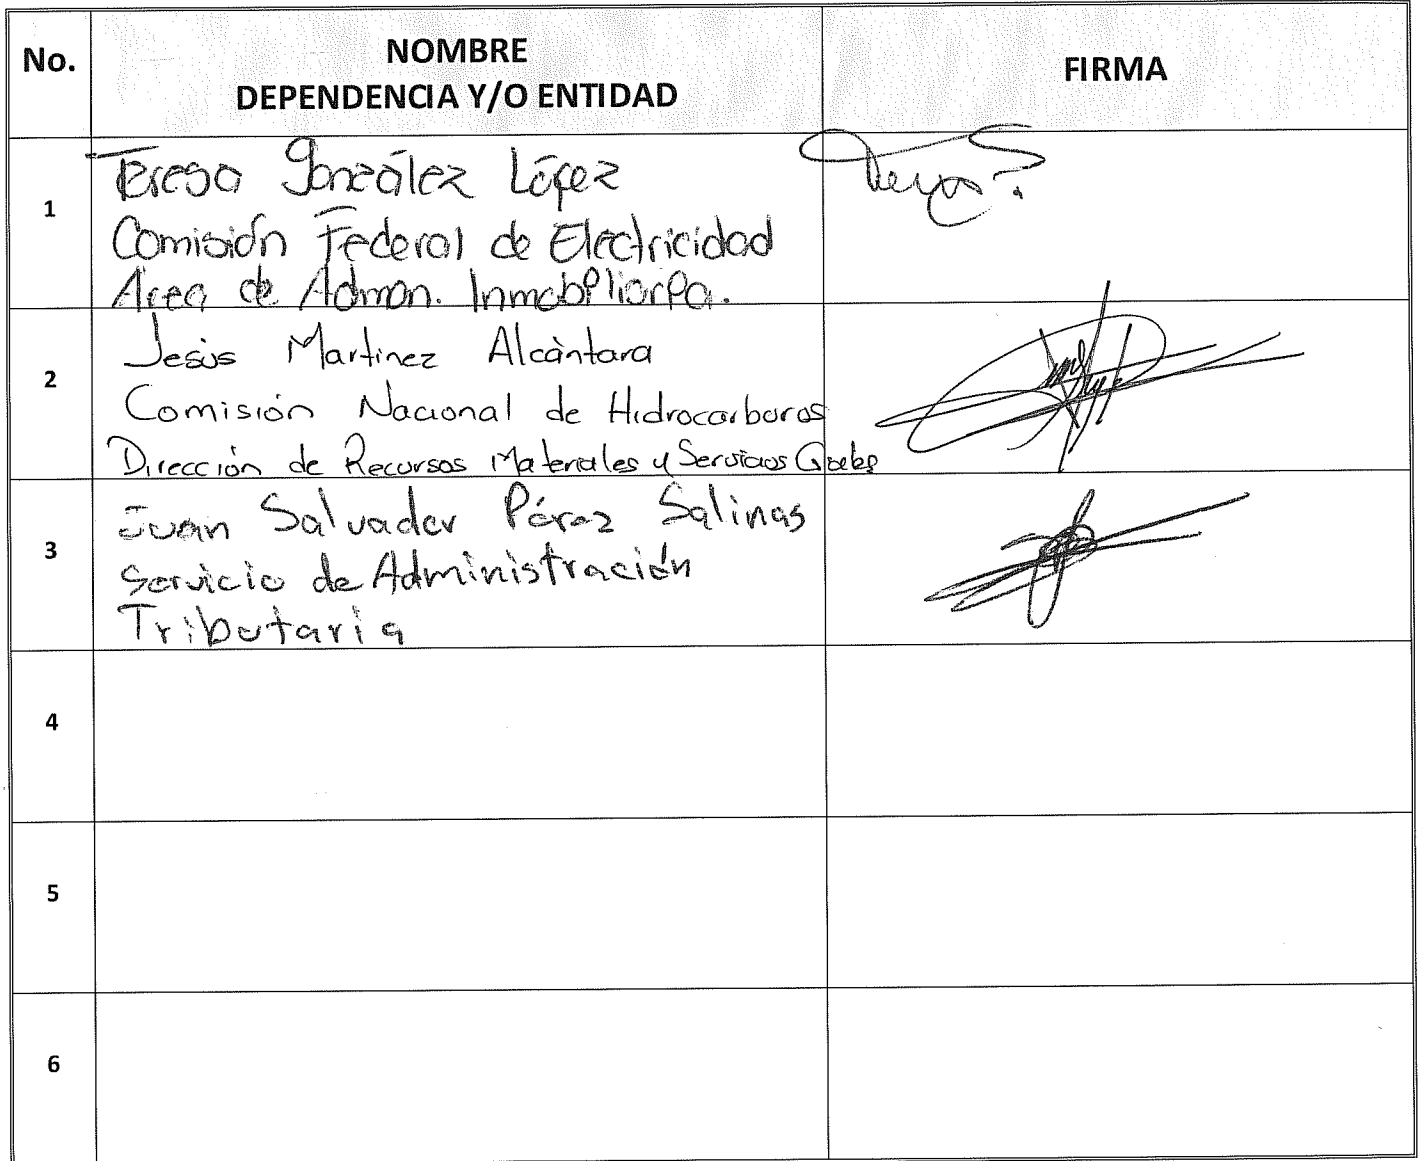 No.
NOMBRE
DEPENDENCIA Y/O ENTIDAD
FIRMA
1
Teresa González López
Comisión Federal de Electricidad
Area de Admon. Inmobiliaria.
2
Jesús Martinez Alcántara
Comisión Nacional de Hidrocarburos
Dirección de Recursos Materiales y Servicios
3
Juan Salvador Pérez Salinas
Servicio de Administración
Tributaria
4
5
6